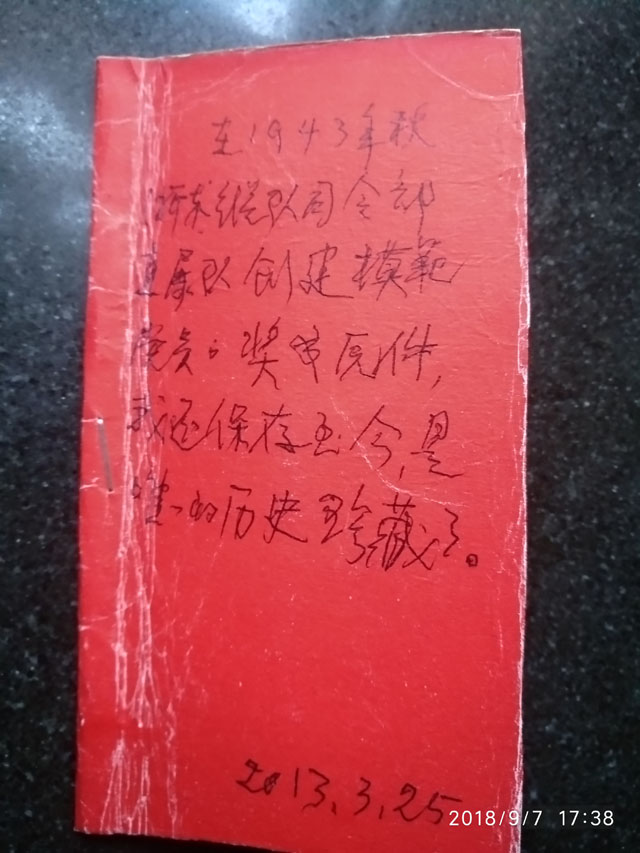 在1943年秋
浙东纵队司令部
直属队创建模範
党员，奖章原件，
我还保存至今，是
唯一的历史珍藏了。
2013.3.25
2018/9/7 17:38